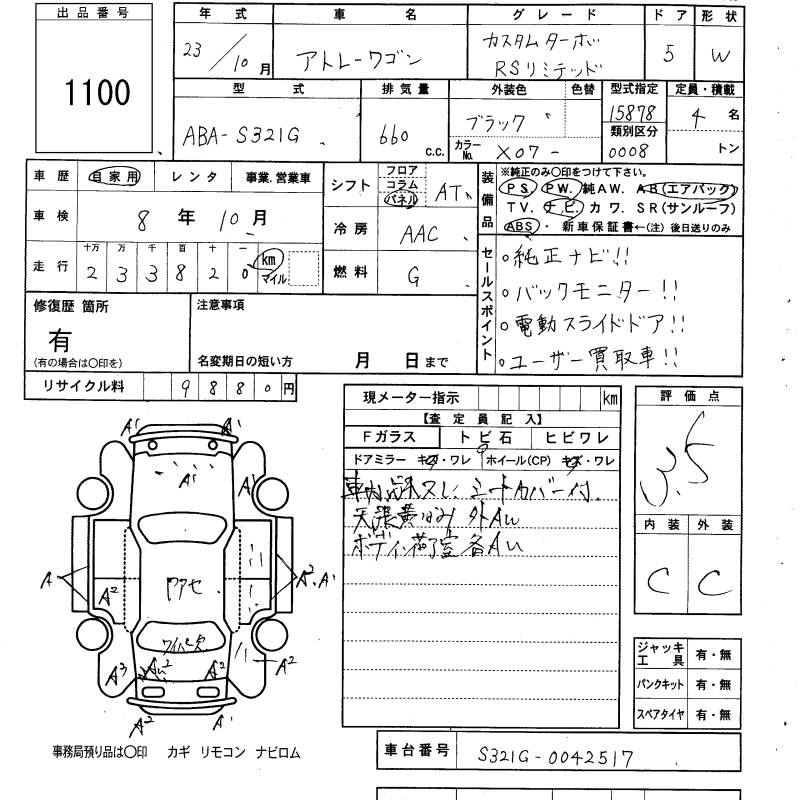 出品番号
1100
年式 車名 グレード ドア 形状
23/10月 アトレーワゴン カスタムターボ RSリミテッド 5 W
型式 排気量 外装色 色替 型式指定 定員・積載
ABA-S321G 660 c.c. ブラック 15878 4名
カラーNo. X07- 類別区分 0008 トン
車歴 自家用 レンタ 事業.営業車
車検 8年10月
走行 十万 万 千 百 十 一
2 3 3 8 2 0 km マイル
シフト フロア コラム パネル AT
冷房 AAC
燃料 G
装備品 ※純正のみ〇印をつけて下さい。
PS PW. 純AW. AB(エアバック)
TV. ナビ. カワ. SR(サンルーフ)
ABS・ 新車保証書←(注)後日送りのみ
セールスポイント
○純正ナビ!!
○バックモニター!!
○電動スライドドア!!
○ユーザー買取車!!
修復歴 箇所
有
(有の場合は〇印を)
注意事項
名変期日の短い方 月 日まで
リサイクル料 9880円
現メーター指示 km
【査定員記入】
Fガラス トビ石 ヒビワレ
ドアミラー キズ・ワレ ホイール(CP) キズ・ワレ
シートカバー付.
外AU
ボディ荷室各AU
評価点
3.5
内装 外装
C C
A' A'
A' A'
A A² A².A'
ウアセ
ワイパー欠
A³ A² A² A²
A² A'
ジャッキ工具 有・無
パンクキット 有・無
スペアタイヤ 有・無
事務局預り品は〇印 カギ リモコン ナビロム
車台番号 S321G-0042517